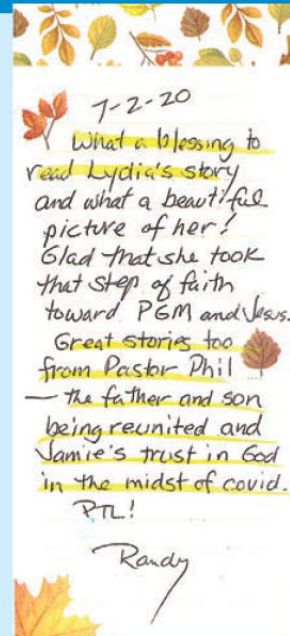 7-2-20
What a blessing to
read Lydia's story
and what a beautiful
picture of her!
Glad that she took
that step of faith
toward PGM and Jesus.
Great stories too
from Pastor Phil
— the father and son
being reunited and
Jamie's trust in God
in the midst of covid.
PTL!
Randy